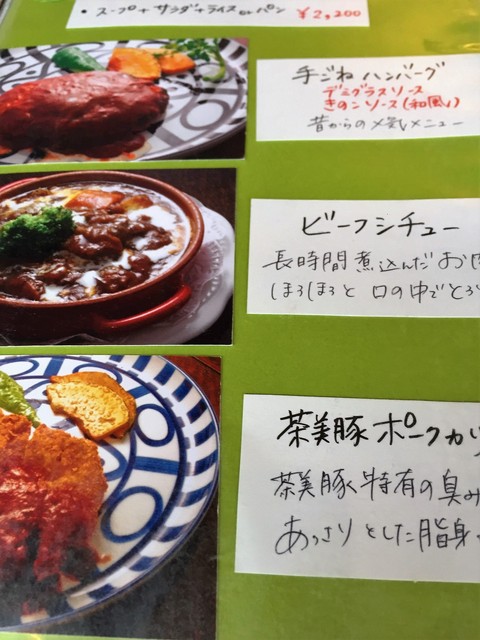 ・スープ+サラダ+ライスorパン ¥2,200
手ごねハンバーグ
デミグラスソース
きのこソース(和風)
昔からの人気メニュー
ビーフシチュー
長時間煮込んだお肉
ほろほろと口の中でとろ
茶美豚ポークカツ
茶美豚特有の臭み
あっさりとした脂身